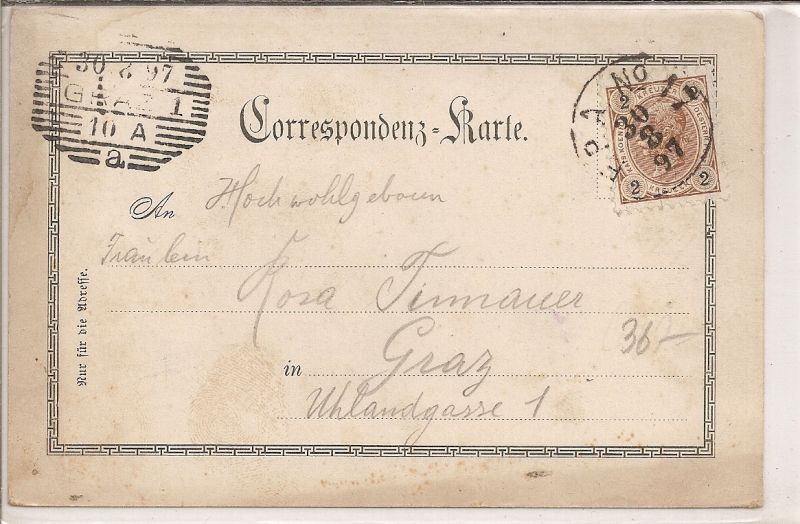 30 8 97
GRAZ 1
10 A
a
Correspondenz-Karte.
2 KREUZER 2
30
8
97
2 KREUZER 2
An Hochwohlgeborn
Fräulein
Rosa
in Graz
Uhlandgasse 1
36-
Nur für die Adresse.